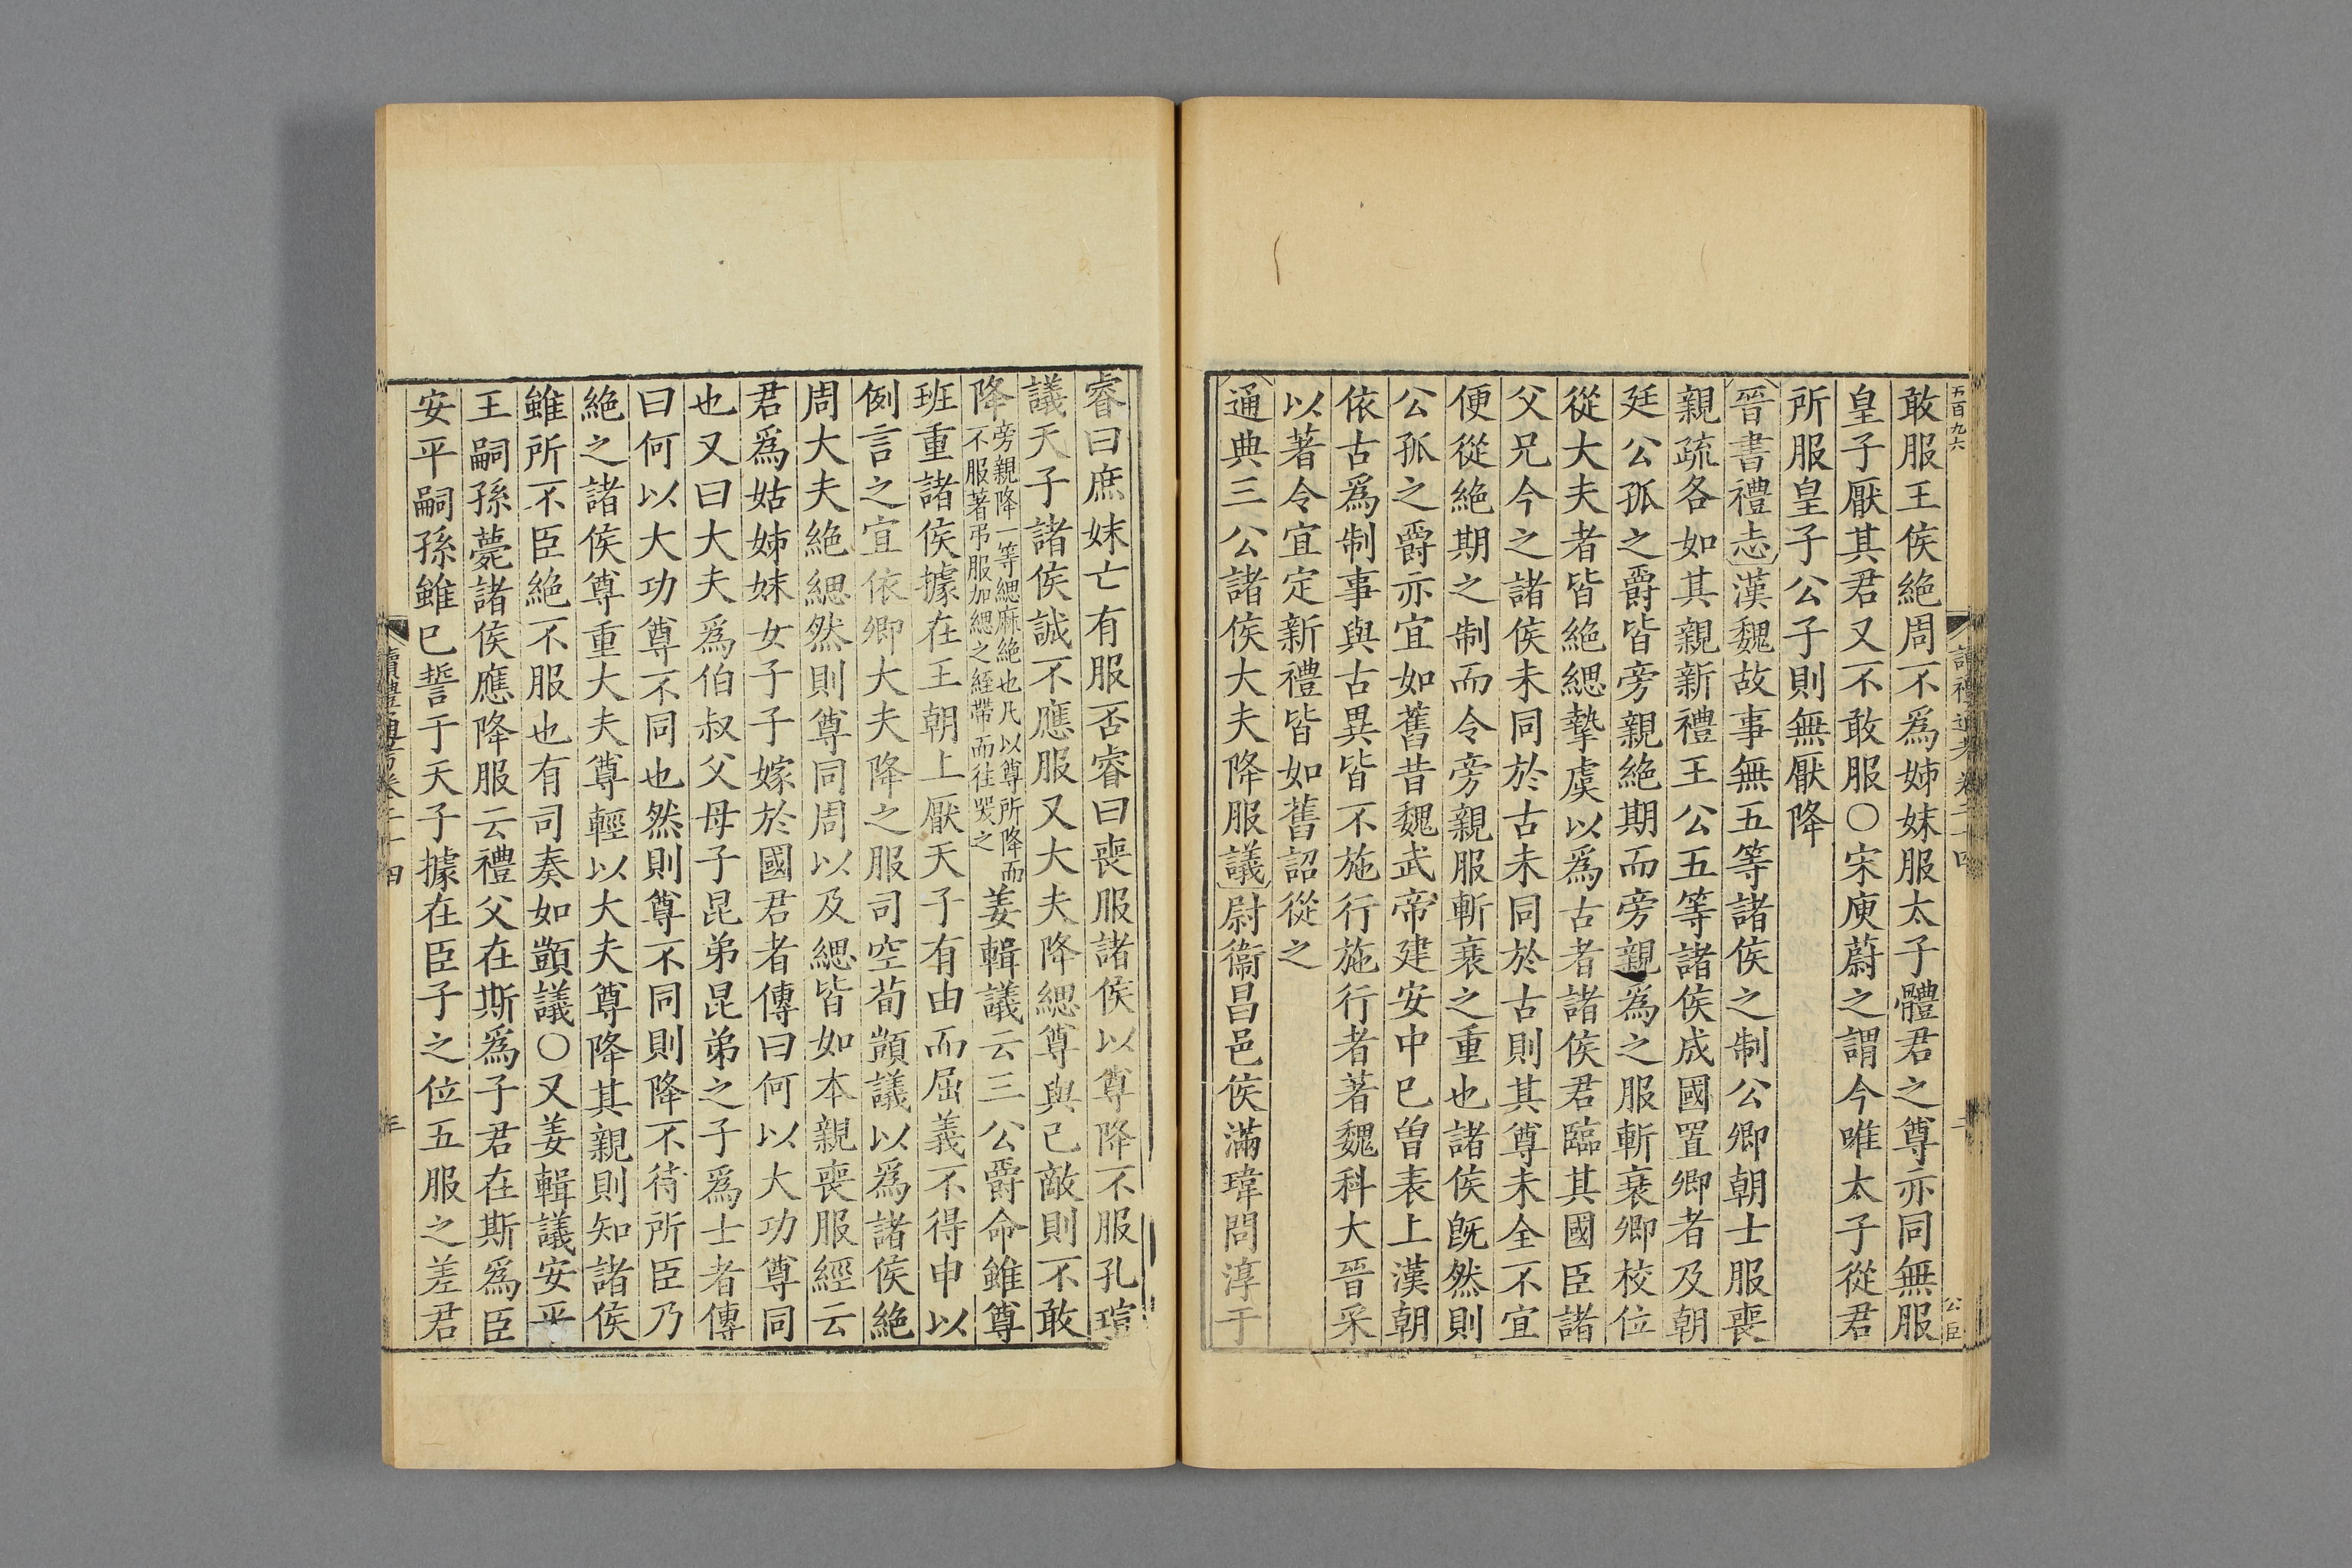 五百九六
敢服王侯絶周不爲姊妹服太子體君之尊亦同無服
皇子厭其君又不敢服○宋庾蔚之謂今唯太子從君
所服皇子公子則無厭降
晉書禮志漢魏故事無五等諸侯之制公卿朝士服喪
親疏各如其親新禮王公五等諸侯成國置卿者及朝
廷公孤之爵皆旁親絶期而旁親爲之服斬衰卿校位
從大夫者皆絶緦摯虞以爲古者諸侯君臨其國臣諸
父兄今之諸侯未同於古未同於古則其尊未全不宜
便從絶期之制而令旁親服斬衰之重也諸侯旣然則
公孤之爵亦宜如舊昔魏武帝建安中已曾表上漢朝
依古爲制事與古異皆不施行施行者著魏科大晉采
以著令宜定新禮皆如舊詔從之
通典三公諸侯大夫降服議尉衞昌邑侯滿瑋問淳于
睿曰庶妹亡有服否睿曰喪服諸侯以尊降不服孔瑄
議天子諸侯誠不應服又大夫降緦尊與己敵則不敢
降旁親降一等緦麻絶也凡以尊所降而不服著弔服加緦之絰帶而往哭之姜輯議云三公爵命雖尊
班重諸侯據在王朝上厭天子有由而屈義不得申以
例言之宜依卿大夫降之服司空荀顗議以爲諸侯絶
周大夫絶緦然則尊同周以及緦皆如本親喪服經云
君爲姑姊妹女子子嫁於國君者傳曰何以大功尊同
也又曰大夫爲伯叔父母子昆弟昆弟之子爲士者傳
曰何以大功尊不同也然則尊不同則降不待所臣乃
絶之諸侯尊重大夫尊輕以大夫尊降其親則知諸侯
雖所不臣絶不服也有司奏如顗議○又姜輯議安平
王嗣孫薨諸侯應降服云禮父在斯爲子君在斯爲臣
安平嗣孫雖已誓于天子據在臣子之位五服之差君
讀禮通考卷二十四